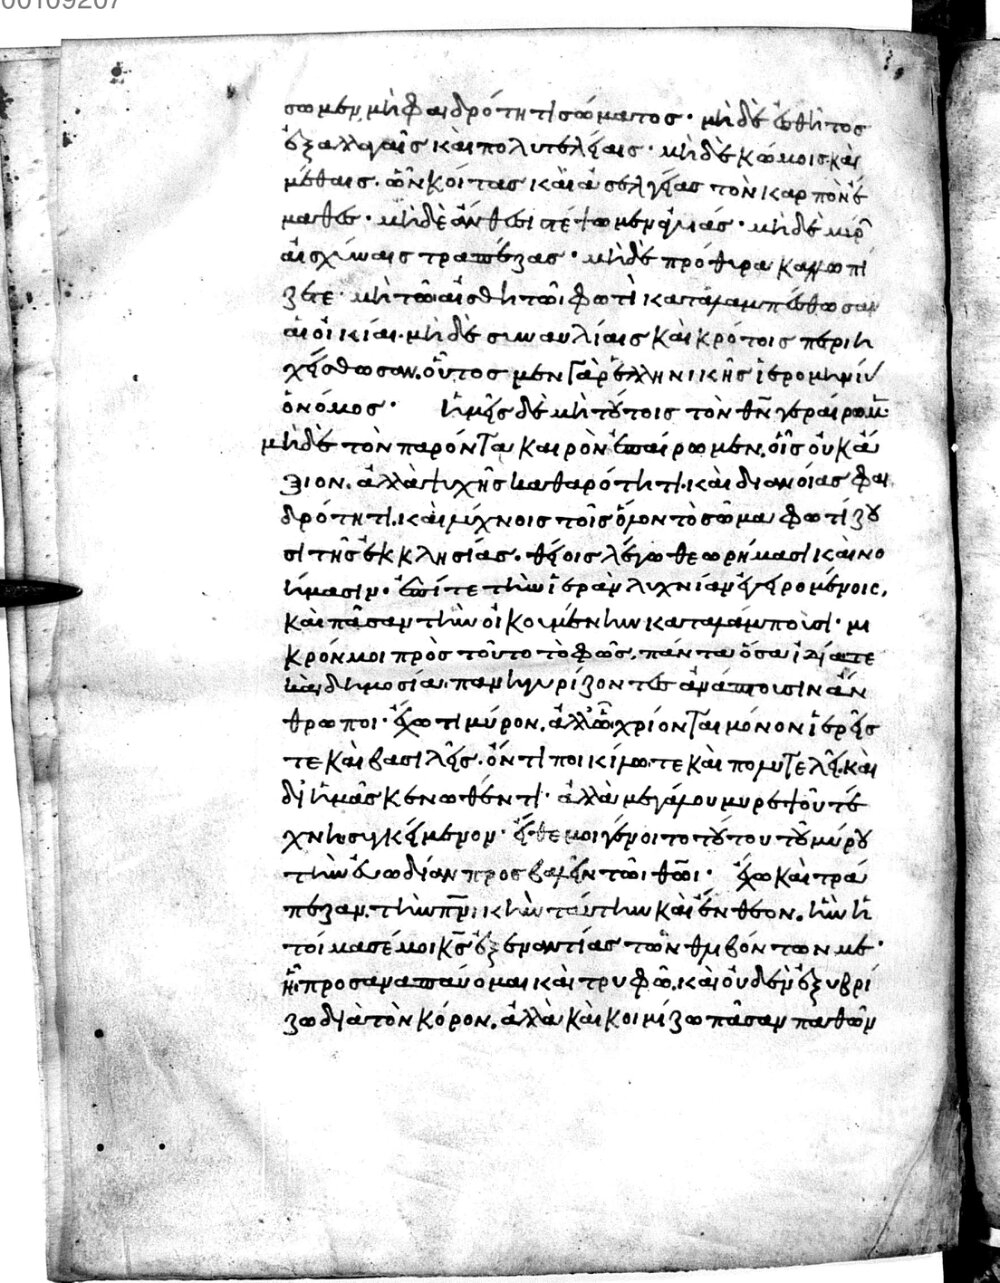 00109207
σωμεν, μὴ φαιδρότητι σώματος· μὴ δὲ ἐσθῆτος
ἐξαλλαγαῖς καὶ πολυτελείαις· μὴ δὲ κώμοις καὶ
μέθαις. ὧν κοίτας καὶ ἀσελγείας τὸν καρπὸν ἔ
μαθες· μὴ δὲ ἄνθεσι στέψωμεν ἀγυιάς· μὴ δὲ μύρ
αἰσχύναις τραπέζας· μὴ δὲ πρόθυρα καλλωπί
ζετε· μὴ τῶ αἰσθητῶι φωτὶ καταλαμπέσθωσαν
αἱ οἰκίαι. μὴ δὲ συναυλίαις καὶ κρότοις περιη
χείσθωσαν. οὗτος μὲν γὰρ ἑλληνικῆς ἱερομηνίας
ὁ νόμος· ἡμεῖς δὲ μὴ τούτοις τὸν θν γεραίρωμεν·
μὴ δὲ τὸν παρόντα καιρὸν ἐπαίρωμεν. οἷς οὐκ ἄ
ξιον. ἀλλὰ ψυχῆς καθαρότητι. καὶ διανοίας φαι
δρότητι. καὶ λύχνοις τοῖς ὅλον τὸ σῶμα φωτίζου
σι τῆς ἐκκλησίας. θείοις λέγω θεωρήμασι καὶ νο
ήμασιν. ἐπί τε τὴν ἱερὰν λυχνίαν ἐγειρομένοις,
καὶ πᾶσαν τὴν οἰκουμένην καταλάμπουσι· μι
κρόν μοι πρὸς τοῦτο τὸ φῶς. πάντα ὅσα ἰδίᾳ τε
καὶ δημοσίᾳ. πανηγυρίζοντες ἀνάπτουσιν ἄν
θρωποι· ἔχω τι μύρον. ἀλλ' ὧ χρίονται μόνον ἱερεῖς
τε καὶ βασιλεῖς. ὄντι ποικίλω τε καὶ πολυτελεῖ. καὶ
δι' ἡμᾶς κενωθέντι· ἀλλὰ μεγάλου μυρεψοῦ τέ
χνης συγκείμενον· εἴθε μοι γένοιτο τούτου τοῦ μύρου
τὴν εὐωδίαν προσβαλεῖν τῶι θῶι· ἔχω καὶ τρά
πεζαν. τὴν πνικὴν ταύτην καὶ ἔνθεον. ἣν ἡ
τοίμασέ μοι κς ἐξεναντίας τῶν θλιβόντων με·
ἧι προσαναπαύομαι καὶ τρυφῶ. καὶ οὐδὲν ἐξυβρί
ζω διὰ τὸν κόρον. ἀλλὰ καὶ κοιμίζω πᾶσαν παθῶν